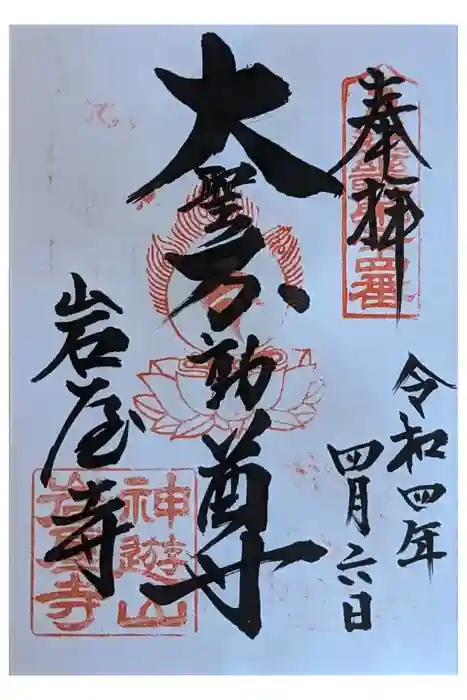 奉拝
令和四年
四月六日
大聖不動尊
岩屋寺
神遊山
岩屋寺